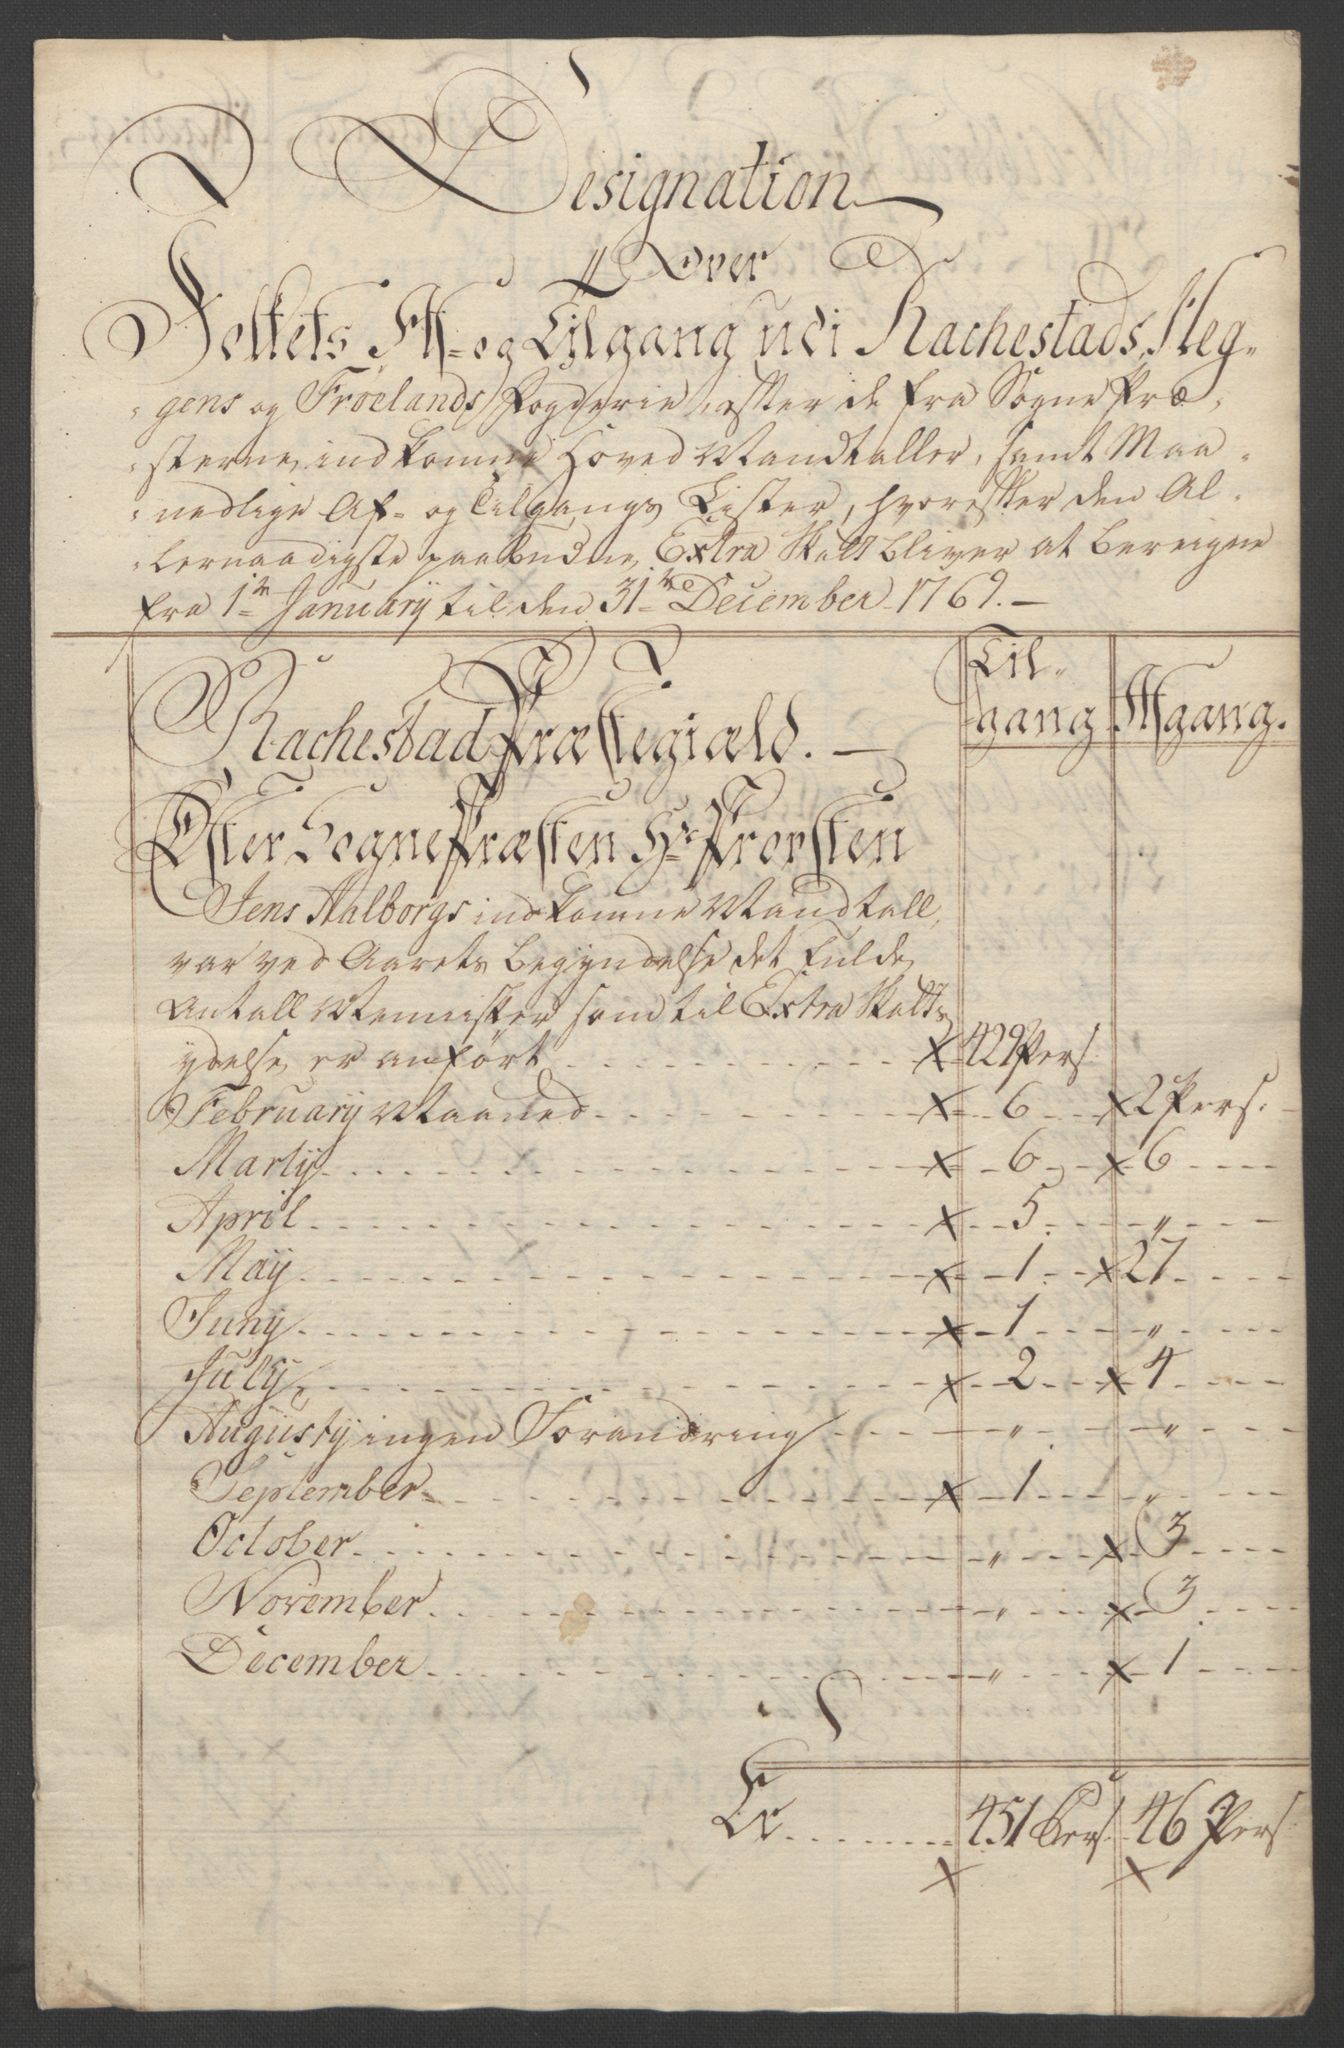 Designation
Over
Folkets Af- og Tilgang udi Rachestads, Heg-
gens og Fröelands Fogderie, efter de fra Sogne Præ-
sterne indkomne Hoved Mandtaller, samt Maa-
nedlige Af- og Tilgangs Lister, hvorefter den Al-
lernaadigste paabudne Extra Skatt bliver at bereigne
fra 1te Januarij til den 31te December 1769.
Til-
gang Afgang.
Rachestad Præstegiæld.
Efter Sogne Præsten Hr Provsten
Jens Aalborgs indkomne Mandtall,
var ved Aarets begyndelse det fulde
Antall Mennisker som til Extra Skatts
ydelse er anført X 429 Pers.
February Maaned X 6 X 2 Pers.
Martij X 6 X 6
April X 5 "
Maij X 1 X 27
Junij X 1 "
Julij X 2 X 4
Augustij ingen Forandring " "
September X 1 "
October " X 3
November " X 3
December " X 1
Er 451 Pers. 46 Pers
X X